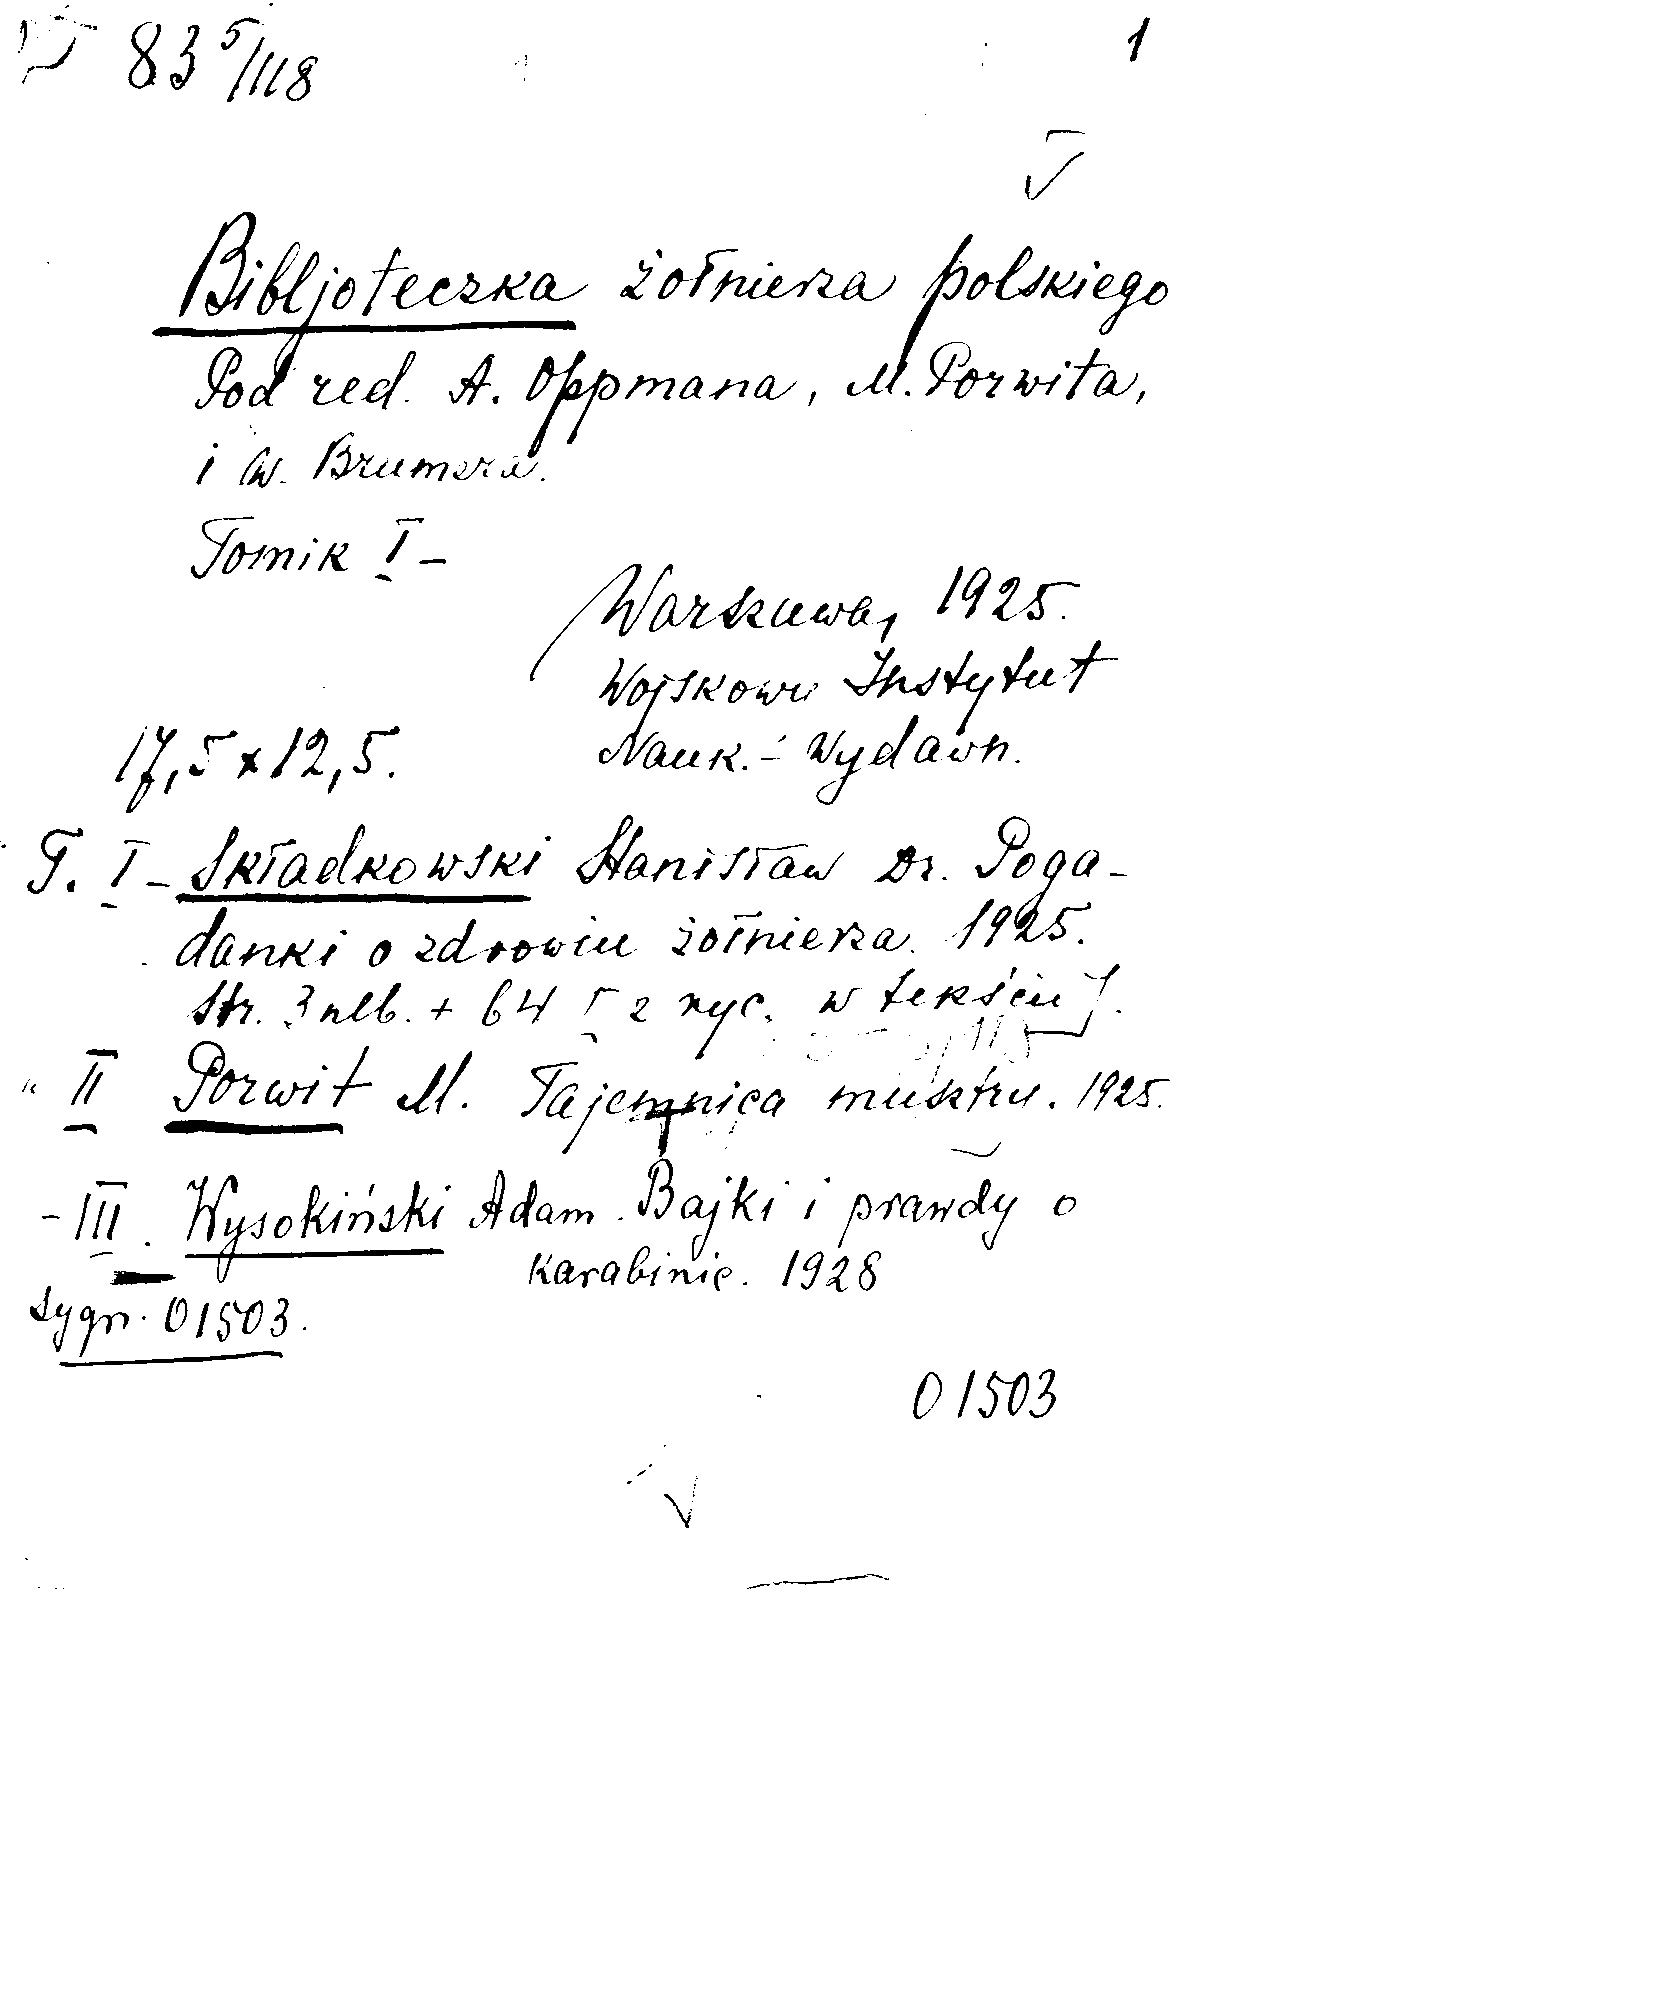 83 5/III8
1
Bibljoteczka żołnierza polskiego
Pod red. A. Oppmana, M. Porwita,
i W. Brumera.
Tomik I –
Warszawa, 1925.
Wojskowy Instytut
Nauk. - Wydawn.
17,5 x 12,5.
T. I – Składkowski Stanisław Dr. Poga-
danki o zdrowiu żołnierza. 1925.
Str. 3 nlb. + 64 [ z ryc. w tekście ].
" II Porwit M. Tajemnica musztry. 1925.
- III. Wysokiński Adam. Bajki i prawdy o
karabinie. 1928
sygn. 01503.
01503